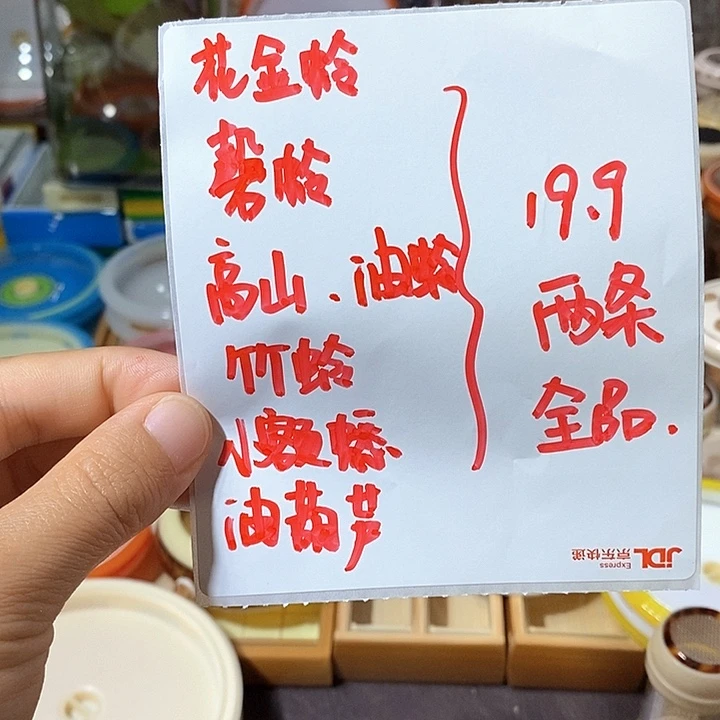 花金蛉
磬蛉
高山.油蛉
竹蛉
油葫芦
19.9
两条
全品.
JDL 京东快递
Express